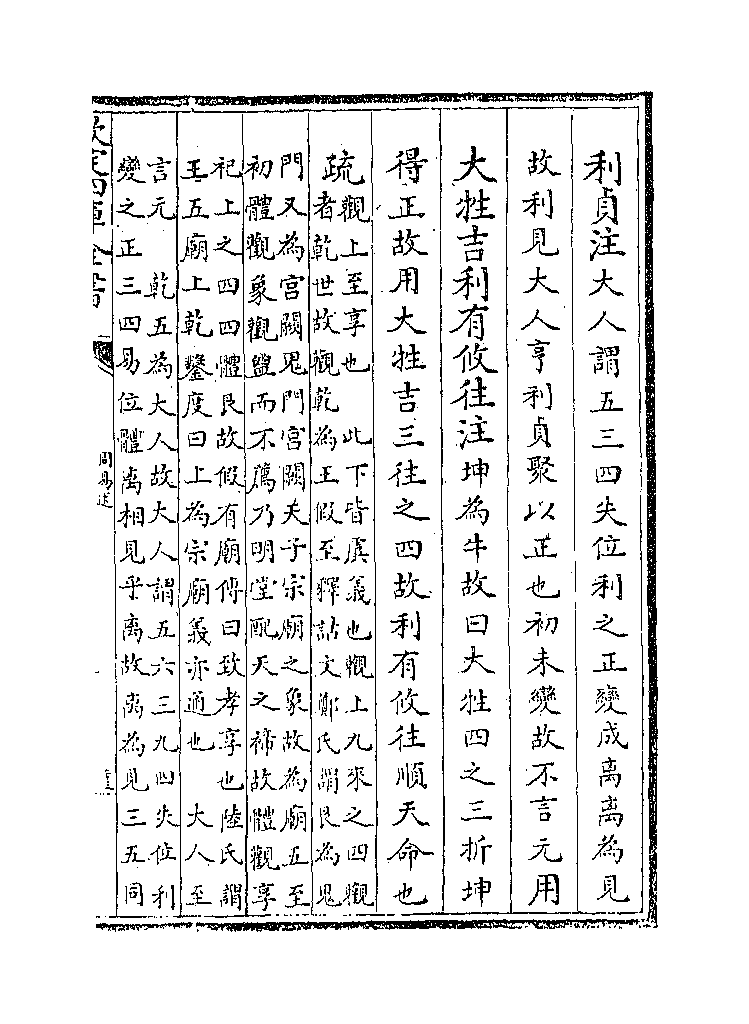 利貞注大人謂五三四失位利之正變成离离為見
故利見大人亨利貞聚以正也初未變故不言元用
大牲吉利有攸往注坤為牛故曰大牲四之三折坤
得正故用大牲吉三往之四故利有攸往順天命也
疏
觀上至享也　此下皆虞義也觀上九來之四觀
者乾世故觀乾為王假至釋詁文鄭氏謂艮為鬼
門又為宮闕鬼門宮闕天子宗廟之象故為廟五至
初體觀象觀盥而不薦乃明堂配天之禘故體觀享
祀上之四四體艮故假有廟傳曰致孝享也陸氏謂
王五廟上乾鑿度曰上為宗廟義亦通也　大人至
言元　乾五為大人故大人謂五六三九四失位利
變之正三四易位體离相見乎离故离為見三五同
欽定四庫全書
周易述